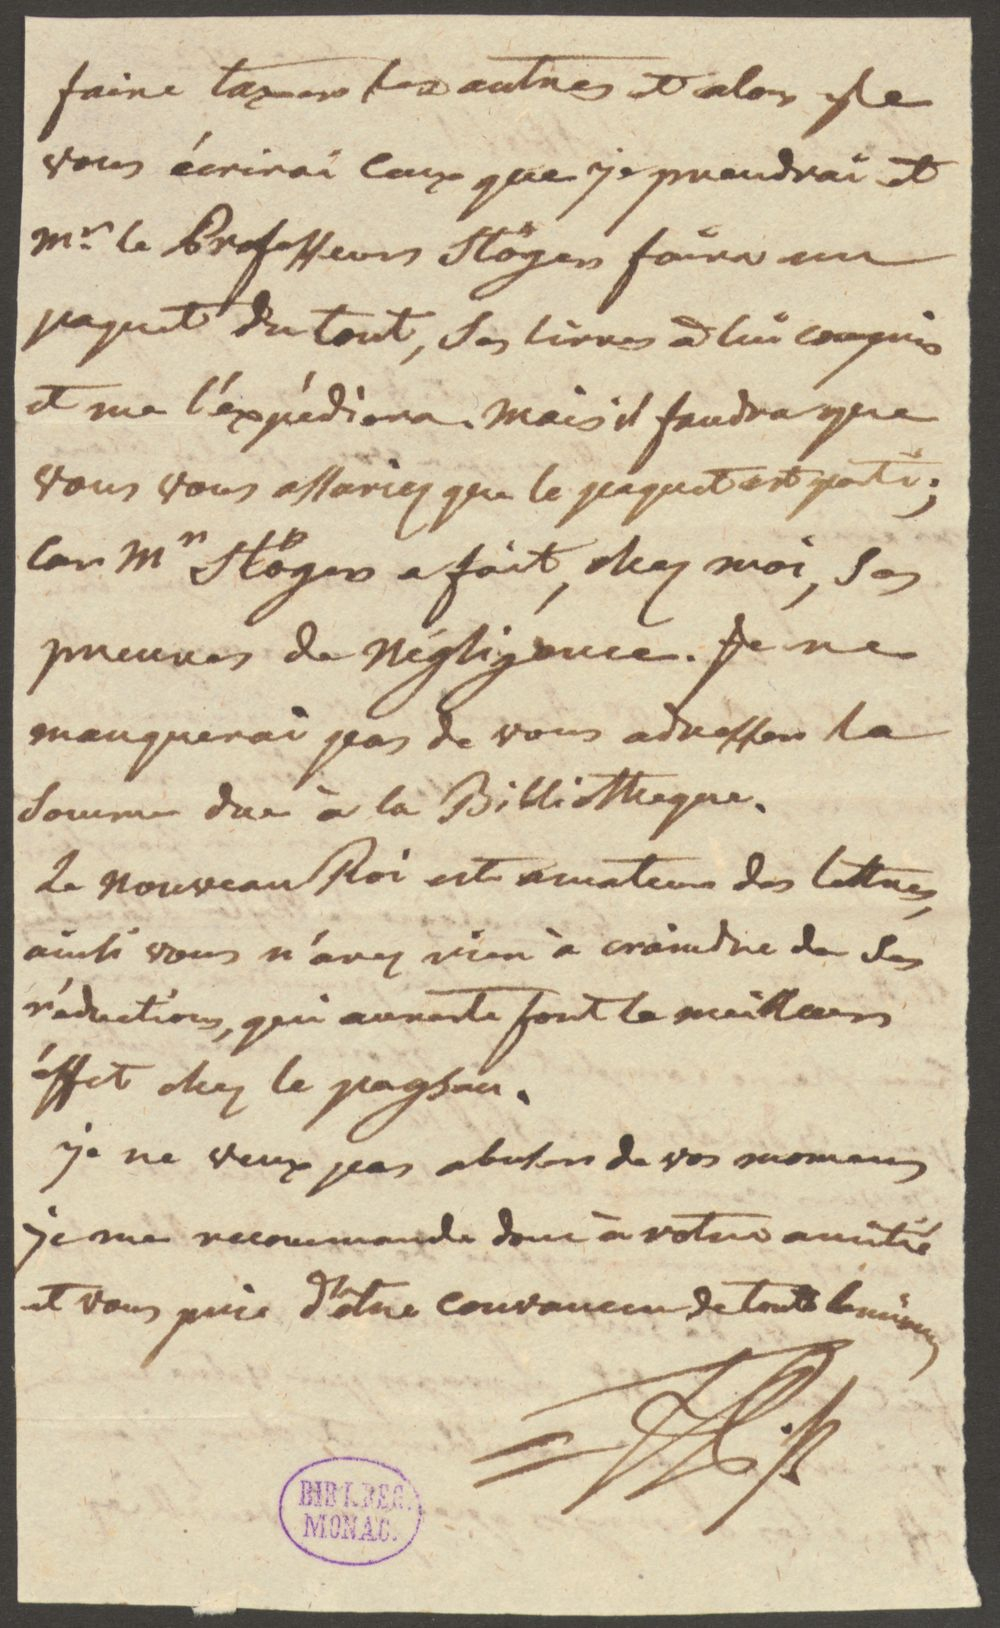 faire taxer les autres et alors je
vous écrirai ceux que je prendrai et
Mr. le Professeur Stöger faira un
paquet du tout, ses livres à lui compris
et me l'éxpédiera. Mais il faudra que
vous vous assuriez que le paquet est parti;
car Mr Stöger a fait, chez moi, ses
preuves de négligence. Je ne
manquerai pas de vous adresser la
somme due à la Bibliotheque.
Le nouveau Roi est amateur des lettres,
ainsi vous n'avez rien à craindre de ses
réductions, qui aureste font le meilleurs
éffet chez le paysan.
je ne veux pas abuser de vos momens
je me recommande donc à votre amitié
et vous prie d'etre convaincu de toute la mienne
BIBL.REG.
MONAC.